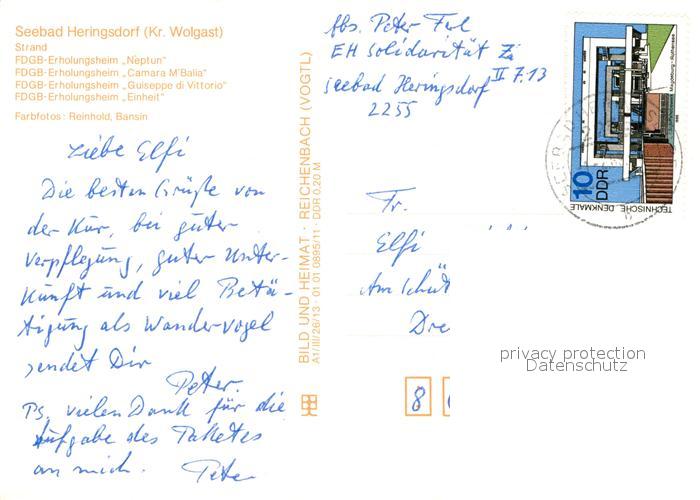 Seebad Heringsdorf (Kr. Wolgast)
Strand
FDGB-Erholungsheim „Neptun"
FDGB-Erholungsheim „Camara M'Balia"
FDGB-Erholungsheim „Guiseppe di Vittorio"
FDGB-Erholungsheim „Einheit"
Farbfotos: Reinhold, Bansin
Liebe Elfi
Die besten Grüße von
der Kur, bei guter
Verpflegung, guter Unter-
kunft und viel Betä-
tigung als Wandervogel
sendet Dir
Peter.
PS. vielen Dank für die
Aufgabe des Paketes
an mich. Peter
BILD UND HEIMAT · REICHENBACH (VOGTL)
A1/III/26/13 · 01 01 0895/11 · DDR 0,20 M
Abs. Peter
EH Solidarität Zi
II 7.13
Seebad Heringsdorf
2255
Fr.
Elfi
Am Schüt
Dre
8
10
DDR
TECHNISCHE DENKMALE
Magdeburg-Rothensee
privacy protection
Datenschutz